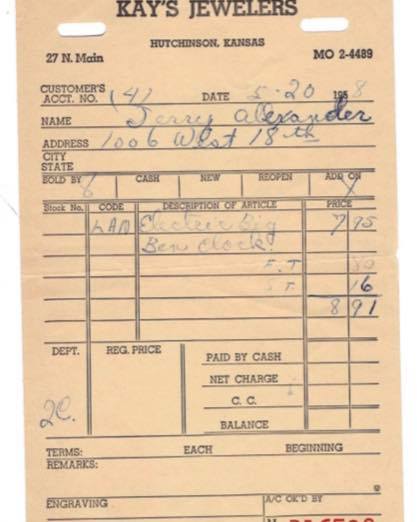 KAY'S JEWELERS
HUTCHINSON, KANSAS
27 N. Main MO 2-4489
CUSTOMER'S ACCT. NO. (4) DATE 5-20 1958
NAME Jerry Alexander
ADDRESS 1006 West 18th
CITY
STATE
SOLD BY 6 CASH NEW REOPEN ADD ON
Stock No. CODE DESCRIPTION OF ARTICLE PRICE
LAD Electric Big 7 95
Ben Clock.
F.T 80
S T 16
8 91
DEPT. REG. PRICE PAID BY CASH
NET CHARGE
C. C.
2C. BALANCE
TERMS: EACH BEGINNING
REMARKS:
ENGRAVING A/C OK'D BY